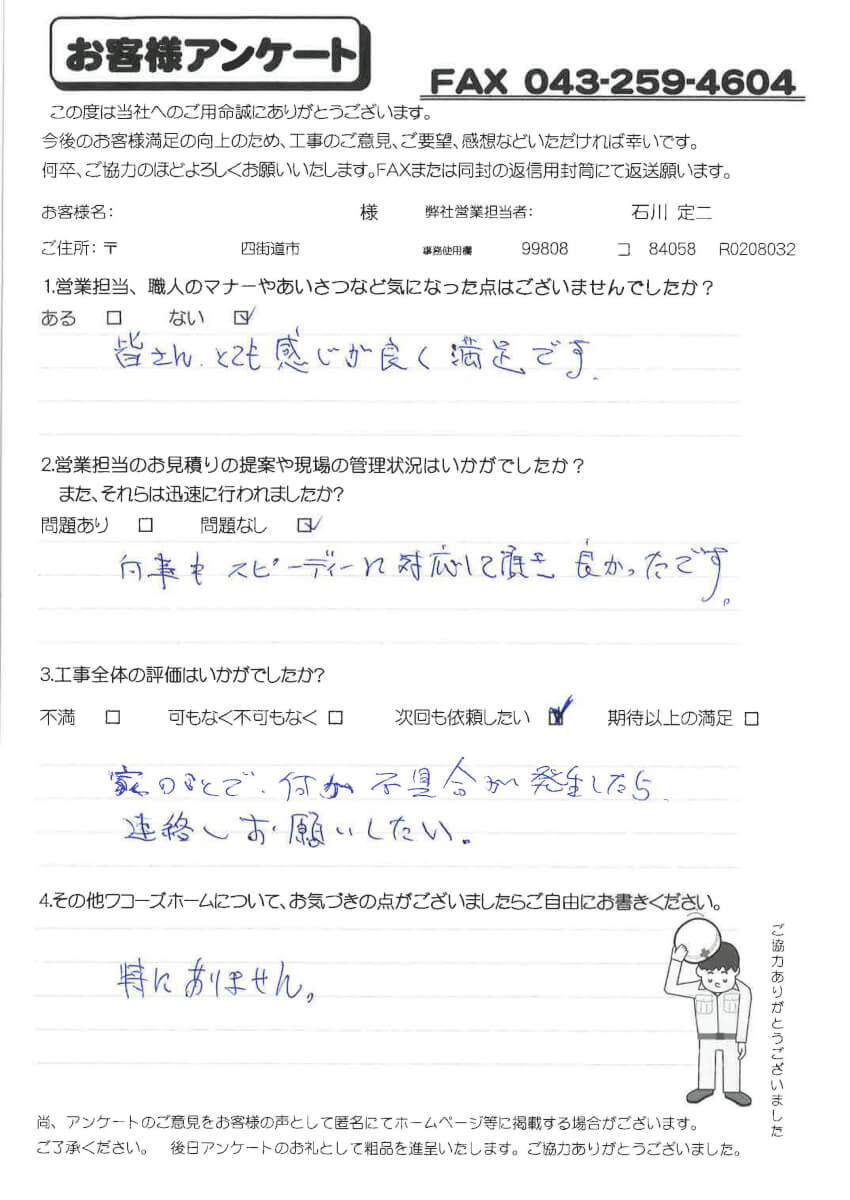 お客様アンケート
FAX 043-259-4604
この度は当社へのご用命誠にありがとうございます。
今後のお客様満足の向上のため、工事のご意見、ご要望、感想などいただければ幸いです。
何卒、ご協力のほどよろしくお願いいたします。FAXまたは同封の返信用封筒にて返送願います。
お客様名: 様 弊社営業担当者: 石川 定二
ご住所: 〒 四街道市 事務使用欄 99808 コ 84058 R0208032
1.営業担当、職人のマナーやあいさつなど気になった点はございませんでしたか？
ある □ ない ☑
皆さん、とても感じが良く満足です.
2.営業担当のお見積りの提案や現場の管理状況はいかがでしたか？
また、それらは迅速に行われましたか?
問題あり □ 問題なし ☑
何事もスピーディーに対応して頂き 良かったです。
3.工事全体の評価はいかがでしたか?
不満 □ 可もなく不可もなく □ 次回も依頼したい ☑ 期待以上の満足 □
家のことで、何か不具合が発生したら、
連絡しお願いしたい。
4.その他ワコーズホームについて、お気づきの点がございましたらご自由にお書きください。
特にありません。
ご協力ありがとうございました
尚、アンケートのご意見をお客様の声として匿名にてホームページ等に掲載する場合がございます。
ご了承ください。 後日アンケートのお礼として粗品を進呈いたします。ご協力ありがとうございました。